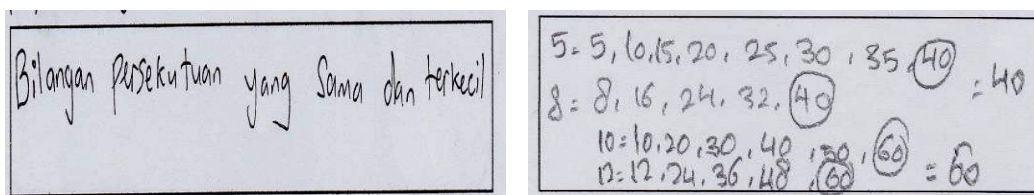 Bilangan persekutuan yang sama dan terkecil
5= 5, 10, 15, 20, 25, 30, 35, 40
= 40
8= 8, 16, 24, 32, 40
10=10, 20, 30, 40, 50, 60
12=12, 24, 36, 48, 60 = 60